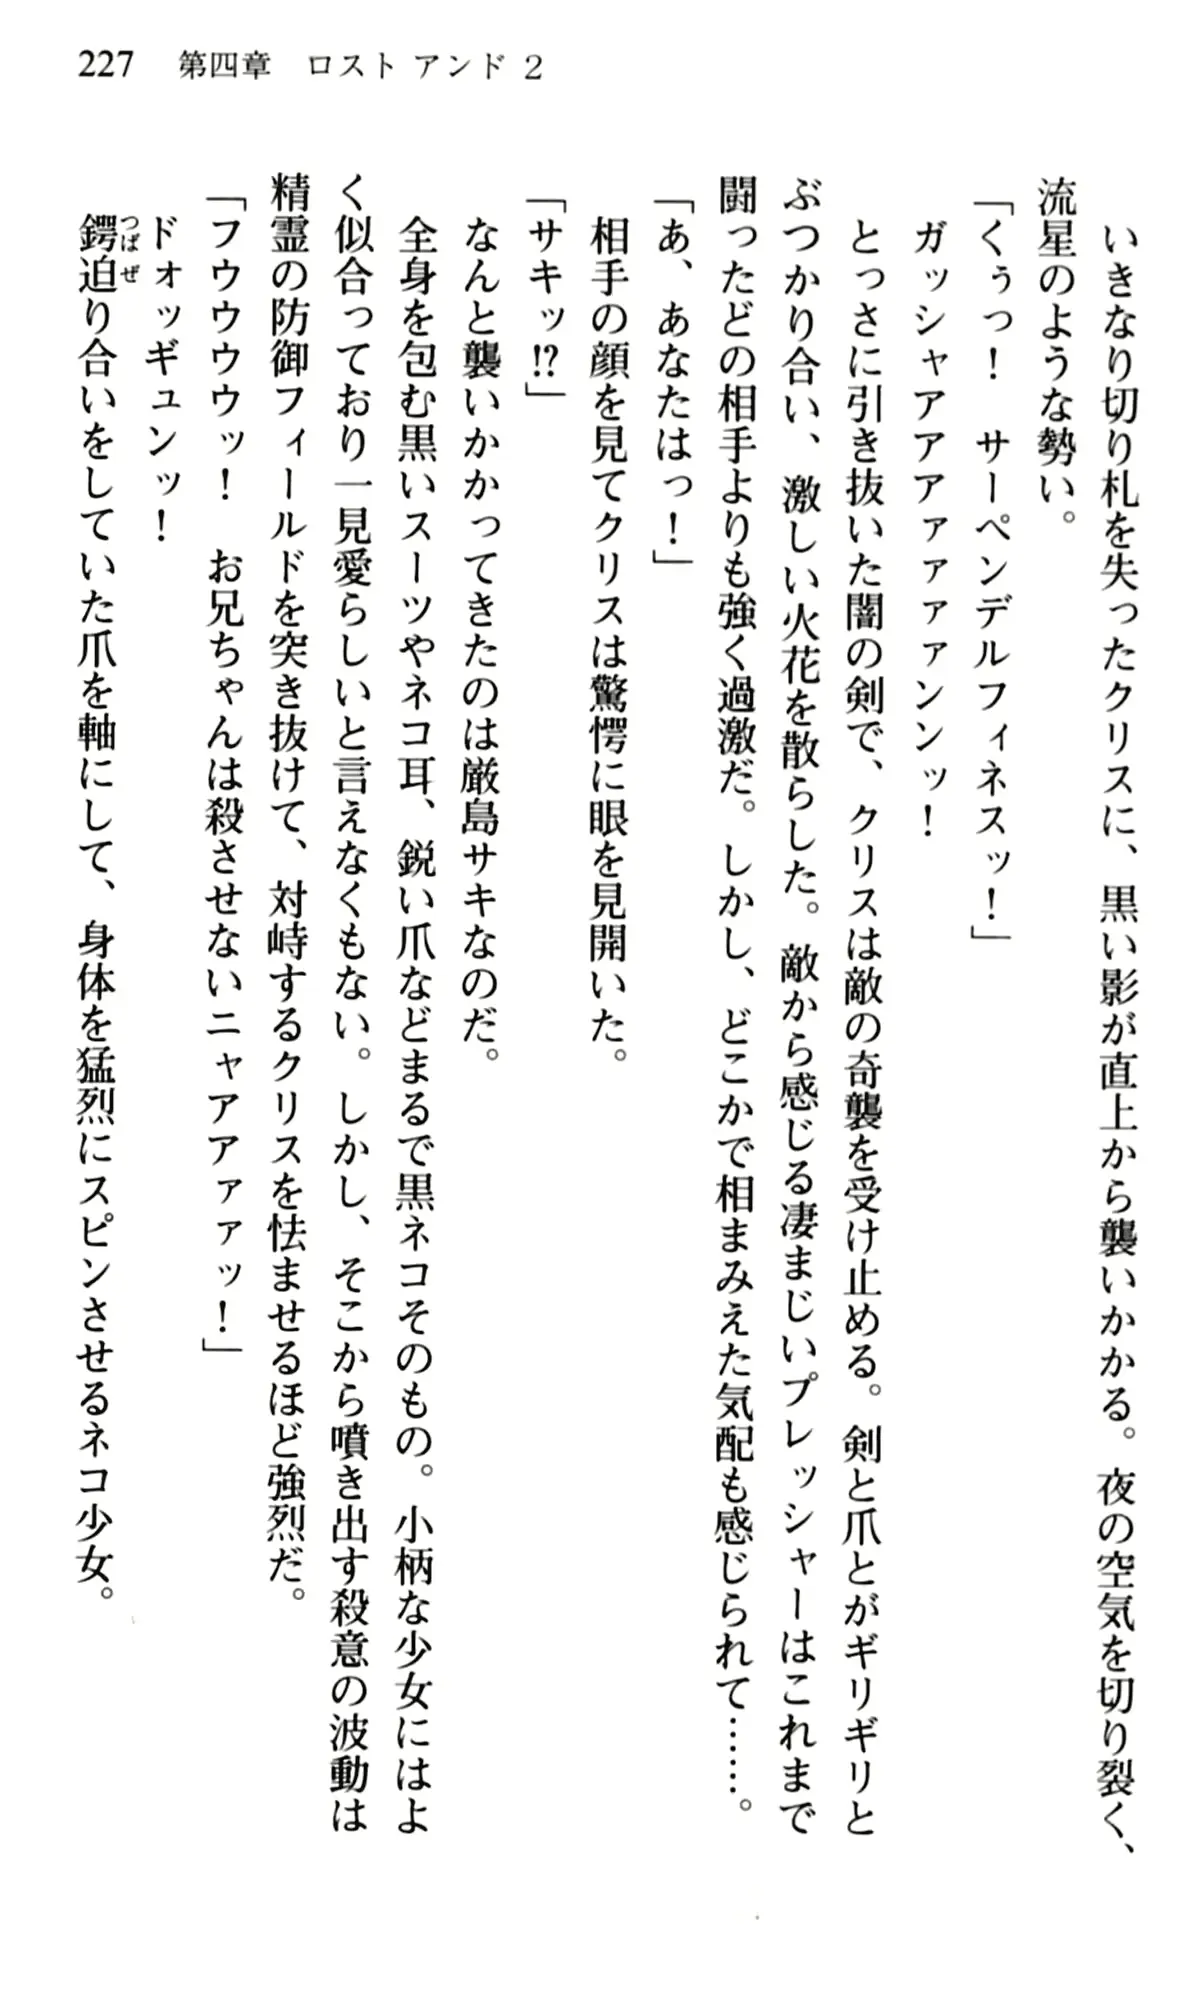 227　第四章　ロスト アンド 2
　いきなり切り札を失ったクリスに、黒い影が直上から襲いかかる。夜の空気を切り裂く、
流星のような勢い。
「くぅっ！　サーペンデルフィネスッ！」
　ガッシャアアアァァァァンンッ！
　とっさに引き抜いた闇の剣で、クリスは敵の奇襲を受け止める。剣と爪とがギリギリと
ぶつかり合い、激しい火花を散らした。敵から感じる凄まじいプレッシャーはこれまで
闘ったどの相手よりも強く過激だ。しかし、どこかで相まみえた気配も感じられて……。
「あ、あなたはっ！」
　相手の顔を見てクリスは驚愕に眼を見開いた。
「サキッ!?」
　なんと襲いかかってきたのは厳島サキなのだ。
　全身を包む黒いスーツやネコ耳、鋭い爪などまるで黒ネコそのもの。小柄な少女にはよ
く似合っており一見愛らしいと言えなくもない。しかし、そこから噴き出す殺意の波動は
精霊の防御フィールドを突き抜けて、対峙するクリスを怯ませるほど強烈だ。
「フウウウウッ！　お兄ちゃんは殺させないニャアアァァッ！」
　ドォッギュンッ！
　鍔迫り合いをしていた爪を軸にして、身体を猛烈にスピンさせるネコ少女。
つばぜ